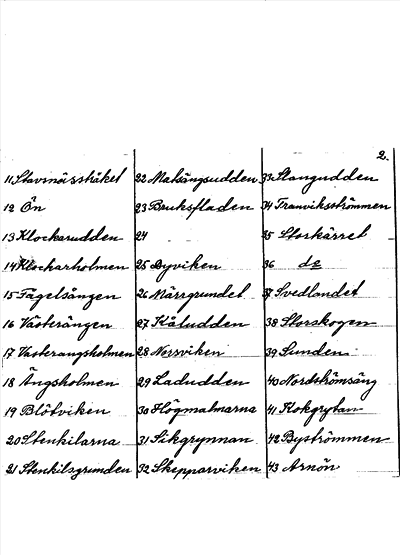 2.
11 Stavsnässtråket
12 Ön
13 Klockarudden
14 Klockarholmen
15 Fågelsången
16 Västerängen
17 Vesterangsholmen
18 Ängsholmen
19 Blötviken
20 Stenkilarna
21 Stenkilsgrunden
22 Matsängsudden
23 Bruksfladen
24
25 Byviken
26 Märrgrundet
27 Kåludden
28 Norrviken
29 Ladudden
30 Högmalmarna
31 Sikgrynnan
32 Skepparviken
33 Stangudden
34 Tranviksströmmen
35 Storkärret
36 do
37 Svedlandet
38 Storskogen
39 Lunden
40 Nordströmsäng
41 Kokgrytan
42 Byströmmen
43 Arnön